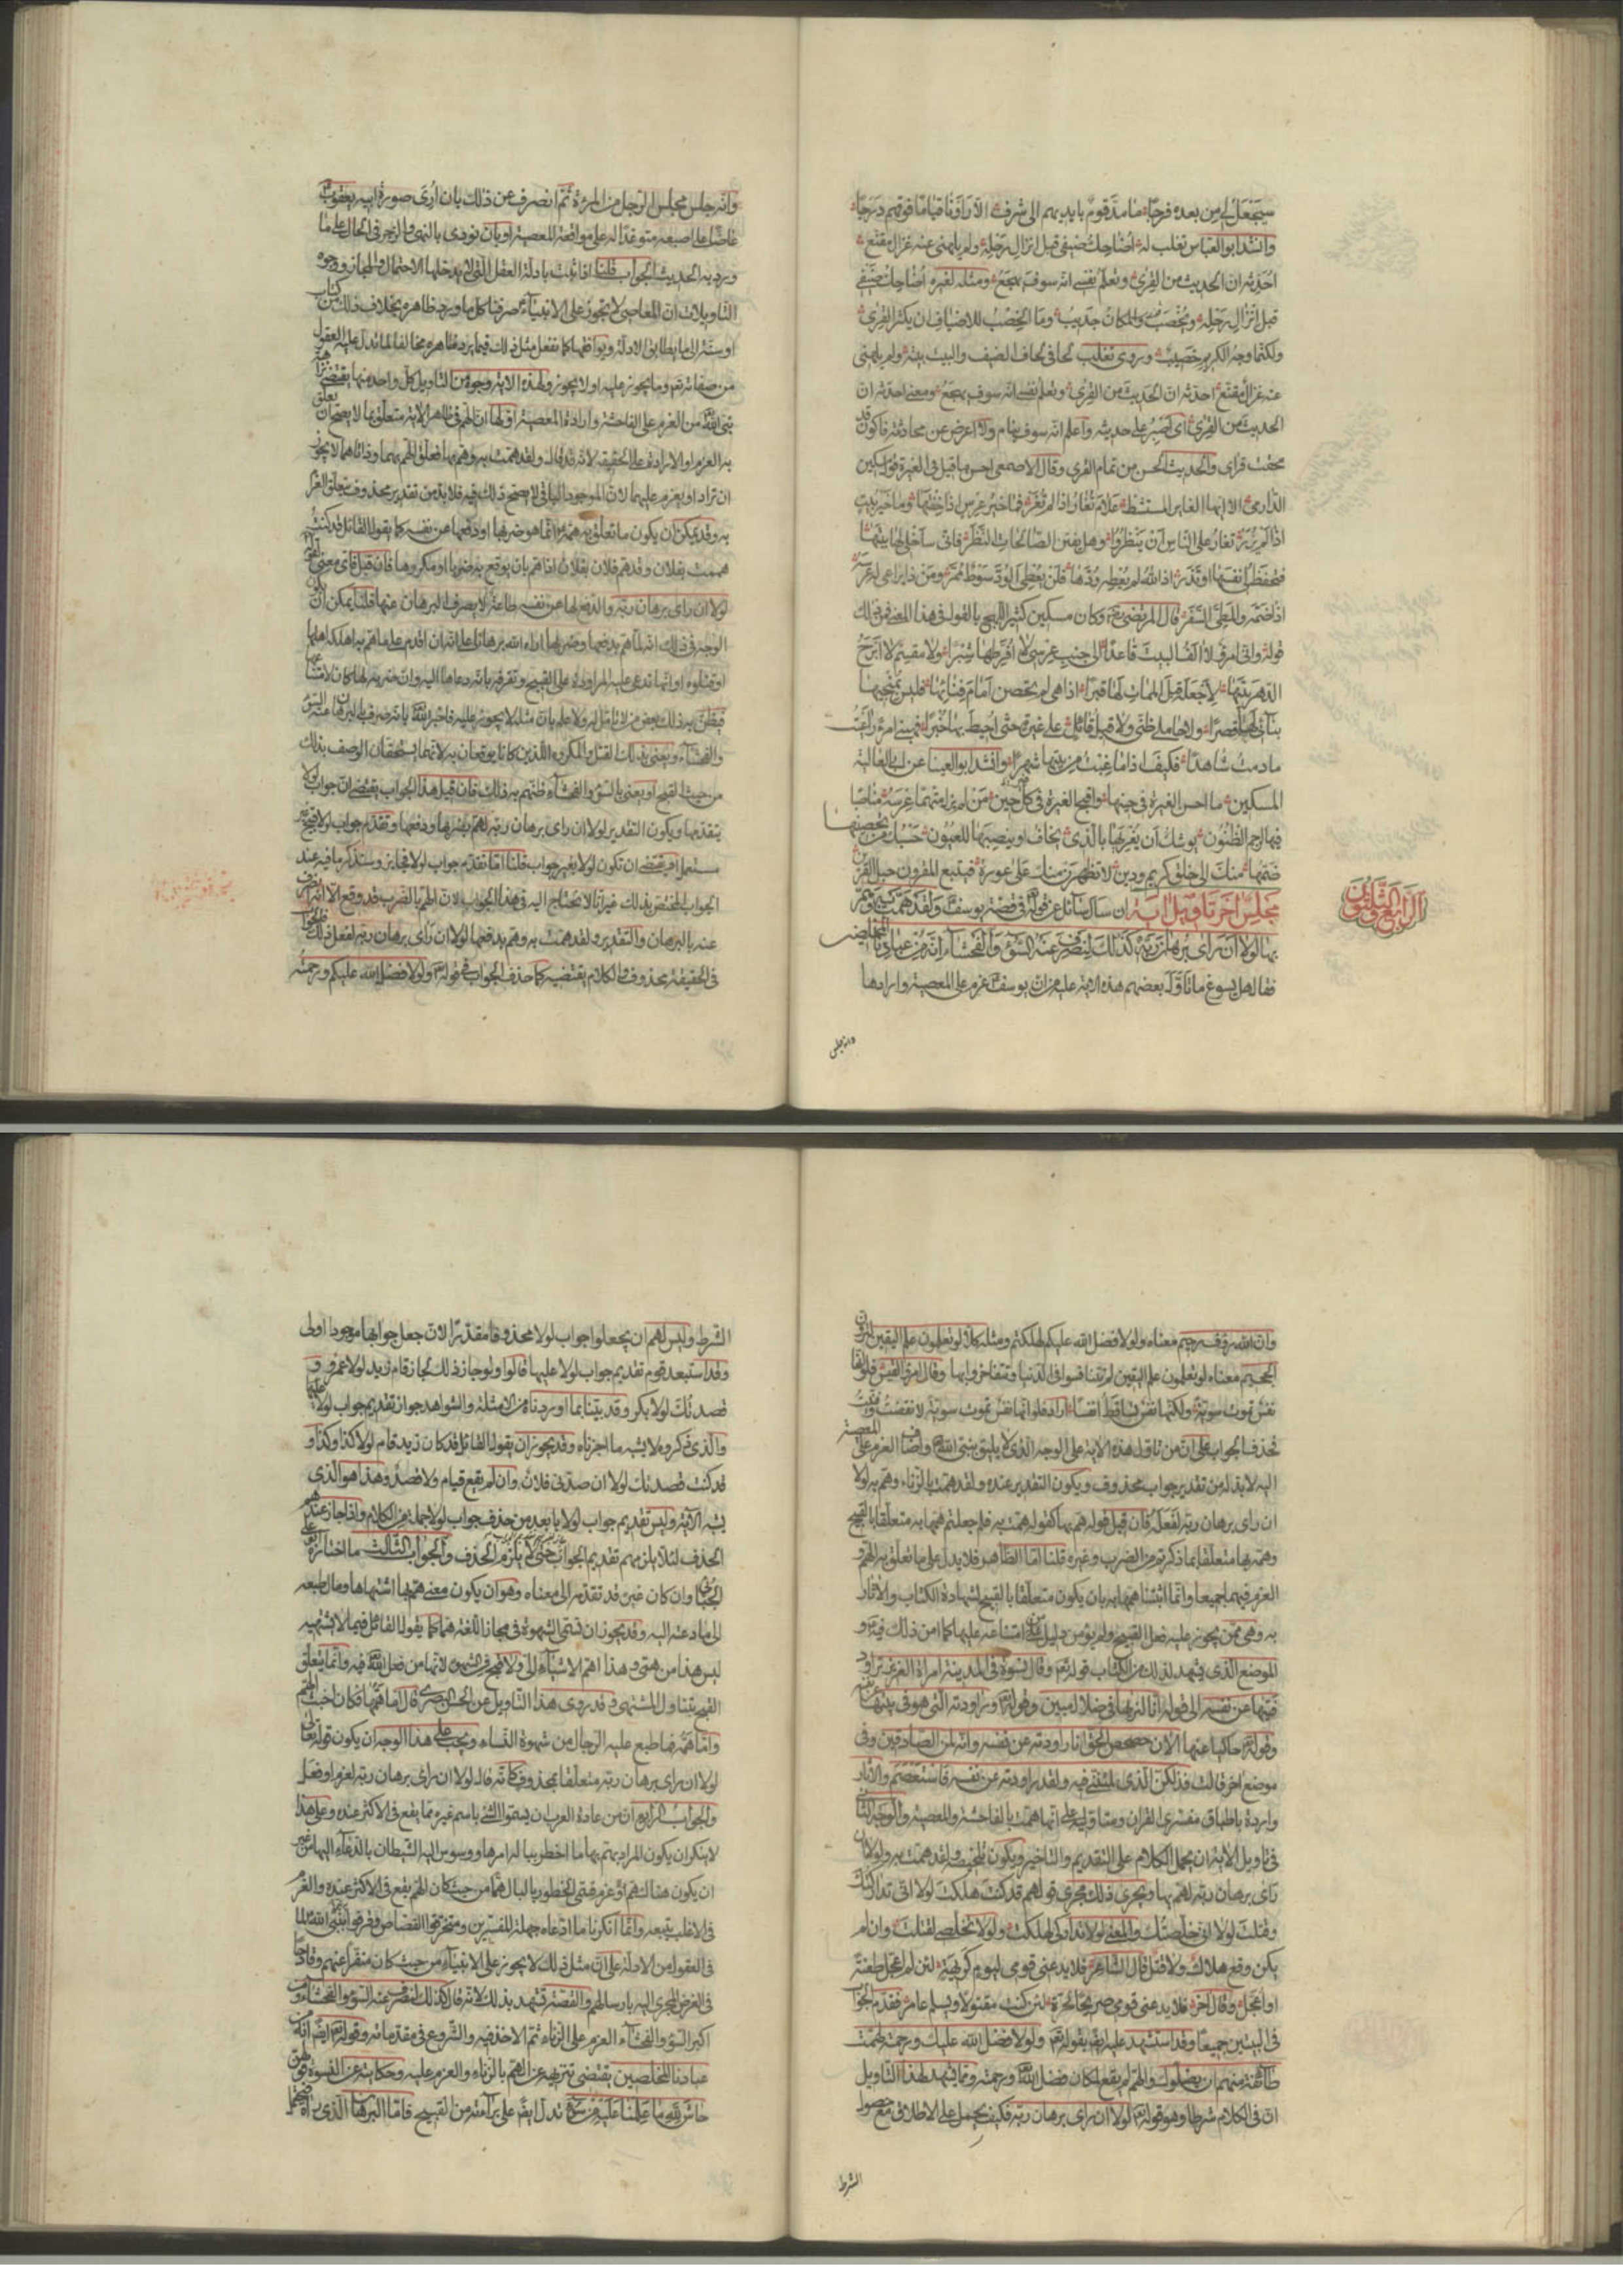 سيجعل لي من بعده فرجا ما مد قوم بايديهم الى شرف الا راونا قياما فوقهم درجا
وانشد ابو العباس ثعلب له اضاحك ضيفي قبل انزال رحله ولم يلهني عنه غزال مقنع
احدثه ان الحديث من القرى وتعلم نفسي انه سوف يهجع ومثله لغيره اضاحك ضيفي
قبل انزال رحله ويخصب والمكان جديب وما الخصب للاضياف ان يكثر القرى
ولكنما وجه الكريم خصيب وروى ثعلب لحافي لحاف الضيف والبيت بيته ولم يلهني
عنه غزال مقنع احدثه ان الحديث من القرى وتعلم نفسي انه سوف يهجع ومعنى احدثه ان
الحديث من القرى اى اصبر على حديثه واعلم انه سوف ينام ولا اعرض عن محادثته فاكون قد
محقت قراى والحديث الحسن من تمام القرى وقال الاصمعي احسن ما قيل في الغيرة قول مسكين
الدارمي الا ايها الغاير المستشيط علام تغار اذا لم تغر فما خير عرس اذا خفتها وما خير بيت
اذا لم يزر تغار على الناس ان ينظروا وهل يفتن الصالحات النظر فاني ساخلي لها بيتها
فتحفظ لي نفسها او تذر اذا الله لم يعطه ودها فلن يعطي الود سوط ممر ومن ذا يراعي له عرسه
اذا ضمه والمطي السفر قال المرتضى وكان مسكين كثير اللهج بالقول في هذا المعنى فمن ذلك
قوله واني امرؤ لا آلف البيت قاعدا الى جنب عرسي لا افرطها شبرا ولا مقسم لا ابرح
الدهر بيتها لاجعله قبل الممات لها قبرا اذا هي لم تحصن امام فنائها فليس بمنجيها
بنائي لها قصرا ولا حاملي ظني ولا قيل قائل على غيرة حتى احيط بها خبرا فهبني امرء راعيت
ما دمت شاهدا فكيف اذا ما غبت من بيتها شهرا وانشد ابو العيناء عن ابي العالية
لمسكين ما احسن الغيرة في حينها واقبح الغيرة في كل حين من لم يزل متهما عرسه مناصبا
فيها لرجم الظنون يوشك ان يغريها بالذي يخاف او ينصبها للعيون حسبك من تحصينها
ضمها منك الى خلق كريم ودين لا تظهرن منك على عورة فيتبع المقرون حبل القرين
الرابع والثلثون
مجلس آخر تاويل آية ان سال سائل عن قوله تع في قصة يوسف ولقد همت به وهم
بها لولا ان راى برهان ربه كذلك لنصرف عنه السوء والفحشاء انه من عبادنا المخلصين
فقال هل يسوغ ما تاول بعضهم هذه الاية عليه من ان يوسف عزم على المعصية وارادها
وانه جلس
وانه جلس مجلس الرجل من المرءة ثم انصرف عن ذلك بان ارى صورة ابيه يعقوب
عاضا على اصبعه متوعدا له على مواقعة المعصية او بان نودى بالنهي والزجر في الحال على ما
ورد به الحديث الجواب قلنا اذا ثبت بادلة العقل التي لا يدخلها الاحتمال والمجاز ووجوه
التاويلات ان المعاصي لا تجوز على الانبياء صرفنا كل ما ورد ظاهره بخلاف ذلك من كتاب
او سنة الى ما يطابق الادلة ويوافقها كما نفعل مثل ذلك فيما يرد ظاهره مخالفا لما تدل عليه العقول
من صفاته تع وما يجوز عليه او لا يجوز ولهذه الاية وجوه من التاويل كل واحد منها يقتضي نزاهة
نبي الله من العزم على الفاحشة وارادة المعصية اولها ان الهم في ظاهر الاية متعلق بما لا يصح ان يعلق
به العزم او الارادة على الحقيقة لانه تع قال ولقد همت به وهم بها فعلق الهم بهما وذاتاهما لا يجوز
ان تراد او يعزم عليهما لان الموجود الباقي لا يصح ذلك فيه فلا بد من تقدير محذوف يتعلق العزم
به وقد يمكن ان يكون ما تعلق به همه انما هو ضربها او دفعها عن نفسه كما يقول القائل قد كنت
هممت بفلان وقد هم فلان بفلان اذا هم بان يوقع به ضربا او مكروها فان قيل فاي معنى لقوله
لولا ان راى برهان ربه والدفع لها عن نفسه طاعة لا يصرف البرهان عنها قلنا يمكن ان يكون
الوجه في ذلك انه لما هم بدفعها وضربها اراه الله برهانا على انه ان اقدم على ما هم به اهلكه اهلها
او قتلوه او انها تدعي عليه المراودة على القبيح وتقرفه بانه دعاها اليه وان ضربه لها كان لامتناعها
فيظن به ذلك بعض من لا تامل له ولا علم بان مثله لا يجوز عليه فاخبر الله تع بانه صرف بالبرهان عنه السوء
والفحشاء ويعني بذلك القتل والمكروه اللذين كانا يوقعان به لانهما يستحقان الوصف بذلك
من حيث القبح او يعني بالسوء والفحشاء ظنهم به ذلك فان قيل هذا الجواب يقتضي ان جواب لولا
يتقدمها ويكون التقدير لولا ان راى برهان ربه لهم بضربها ودفعها وتقدم جواب لولا قبيح غير
مستعمل او يقتضي ان تكون لولا بغير جواب قلنا اما تقدم جواب لولا فجايز وسنذكر ما فيه عند
الجواب المختص بذلك غير انا لا نحتاج اليه في هذا الجواب لان الهم بالضرب قد وقع الا انه انصرف
عنه بالبرهان والتقدير ولقد همت به وهم بدفعها لولا ان راى برهان ربه لفعل ذلك فالجواب
في الحقيقة محذوف والكلام يقتضيه كما حذف الجواب في قوله تع ولولا فضل الله عليكم ورحمته
وان الله رؤف رحيم معناه ولولا فضل الله عليكم لهلكتم ومثله كلا لو تعلمون علم اليقين لترون
الجحيم معناه لو تعلمون علم اليقين لم تتنافسوا في الدنيا وتتفاخروا بها وقال امرؤ القيس فلو انها
نفس تموت سوية ولكنها نفس تساقط انفسا اراد فلو انها نفس تموت سوية لانقضت وفنيت
فحذف الجواب على ان من تاول هذه الاية على الوجه الذي لا يليق بنبي الله واضاف العزم على المعصية
اليه لا بد له من تقدير جواب محذوف ويكون التقدير عنده ولقد همت بالزناء وهم به لولا
ان راى برهان ربه لفعله فان قيل قوله هم بها كقوله همت به فلم جعلتم همها به متعلقا بالقبيح
وهمه بها متعلقا بما ذكرتم من الضرب وغيره قلنا اما الظاهر فلا يدل على ما تعلق به الهم و
العزم فيهما جميعا وانما اثبتنا همها به بان يكون متعلقا بالقبيح لشهادة الكتاب والآثار
به وهي ممن يجوز عليه فعل القبيح ولم يؤمن دليل من امتناعه عليها كما امن ذلك فيه و
الموضع الذي يشهد لذلك من الكتاب قوله تع وقال نسوة في المدينة امراة العزيز تراود
فتيها عن نفسه الى قوله انا لنريها في ضلال مبين وقوله تع وراودته التي هو في بيتها عن نفسه
وقوله تع حاكيا عنها الآن حصحص الحق انا راودته عن نفسه وانه لمن الصادقين وفي
موضع اخر قالت فذلكن الذي لمتنني فيه ولقد راودته عن نفسه فاستعصم والآثار
واردة باطباق مفسرى القران ومتاوليه على انها همت بالفاحشة والمعصية والوجه الثاني
في تاويل الاية ان يحمل الكلام على التقديم والتاخير ويكون تلخيصه ولقد همت به ولولا ان
راى برهان ربه لهم بها ويجرى ذلك مجرى قولهم قد كنت هلكت لولا اني تداركتك
وقتلت لولا اني خلصتك والمعنى لولا تداركي لهلكت ولولا تخليصي لقتلت وان لم
يكن وقع هلاك ولا قتل قال الشاعر فلا يدعني قومي ليوم كريهة لئن لم اعجل طعنة
او اعجل وقال آخر فلا يدعني قومي صريحا لحرة لئن كنت مقتولا ويسلم عامر فقدم الجواب
في البيتين جميعا وقد استشهد عليه ايضا بقوله تع ولولا فضل الله عليك ورحمته لهمت
طائفة منهم ان يضلوك والهم لم يقع لمكان فضل الله ورحمته ومما يشهد لهذا التاويل
ان في الكلام شرطا وهو قوله تع لولا ان راى برهان ربه فكيف يحمل على الاطلاق مع حصول
الشرط
الشرط وليس لهم ان يجعلوا جواب لولا محذوفا مقدرا لان جعل جوابها موجودا اولى
وقد استبعد قوم تقديم جواب لولا عليها قالوا ولو جاز ذلك لجاز قام زيد لولا عمرو و
قصدتك لولا بكر وقد بينا بما اوردناه من الامثلة والشواهد جواز تقديم جواب لولا عليها
والذي ذكروه لا يشبه ما اجزناه وقد يجوز ان يقول القائل قد كان زيد قام لولا كذا وكذا و
قد كنت قصدتك لولا ان صدني فلان وان لم يقع قيام ولا قصد وهذا هو الذي
يشبه الآية وليس تقديم جواب لولا بابعد من حذف جواب لولا جملة من الكلام واذا جاز عندهم
الحذف لئلا يلزمهم تقديم الجواب جاز لغيرهم تقديم الجواب حتى لا يلزم الحذف والجواب الثالث ما اختاره ابو علي
الجبائي وان كان غيره قد تقدمه الى معناه وهو ان يكون معنى هم بها اشتهاها ومال طبعه
الى ما دعته اليه وقد يجوز ان تسمى الشهوة في مجاز اللغة هما كما يقول القائل فيما لا يشتهيه
ليس هذا من همي وهذا اهم الاشياء الي ولا قبح في الشهوة لانها من فعل الله فيه وانما يتعلق
القبح بتناول المشتهى وقد روى هذا التاويل عن الحسن البصري قال اما همها فكان اخبث الهم
واما همه فما طبع عليه الرجال من شهوة النساء ويجب على هذا الوجه ان يكون قوله تعالى
لولا ان راى برهان ربه متعلقا بمحذوف كانه قال لولا ان راى برهان ربه لعزم او فعل
والجواب الرابع ان من عادة العرب ان يسموا الشئ باسم غيره مما يقع في الاكثر عنده وعلى هذا
لا ينكر ان يكون المراد بهم بها اى خطر بباله امرها ووسوس اليه الشيطان بالدعاء اليها من غير
ان يكون هناك هم او عزم فسمي الخطور بالبال هما من حيث كان الهم يقع في الاكثر عنده والعزم
في الاغلب يتبعه وانما انكرنا ما ادعاه جهلة المفسرين ومتخرقوا القصاص وقرفوا به نبي الله لما
في العقول من الادلة على ان مثل ذلك لا يجوز على الانبياء من حيث كان منفرا عنهم وقادحا
في الغرض المجرى اليه بارسالهم والقصة تشهد بذلك لانه تع قال كذلك لنصرف عنه السوء والفحشاء ومن
اكبر السوء والفحشاء العزم على الزناء ثم الاخذ فيه والشروع في مقدماته وقوله تع ايضا انه من
عبادنا المخلصين يقتضي تنزيهه عن الهم بالزناء والعزم عليه وحكايته عن النسوة قولهن
حاش لله ما علمنا عليه من سوء تدل ايضا على براءته من القبيح فاما البرهان الذي رآه فيحتمل